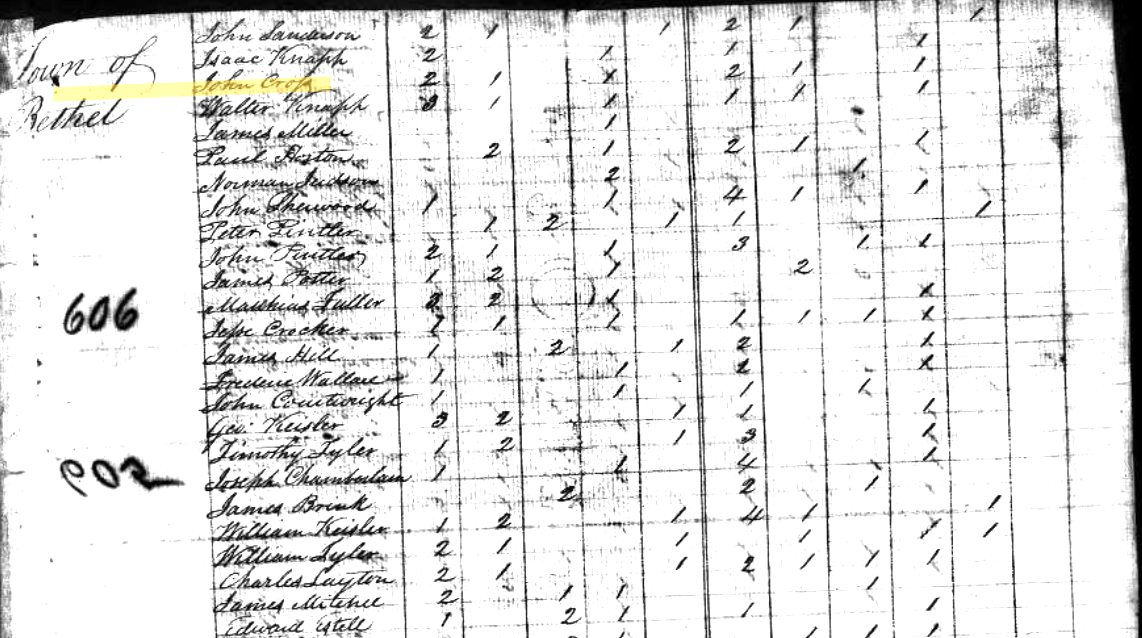 John Sanderson 2 1 1 2 1 1
Town of
Isaac Knapp 2 1 1 1
John Cross 2 1 1 2 1 1
Bethel
Walter Knapp 3 1 1 1 1 1
James Miller 1
Paul Heston 2 1 2 1 1
Norman Judson 2 1
John Sherwood 1 1 4 1 1
Peter Pintler 1 2 1 1 1
John Pintler 2 1 1 3 1 1
James Potter 1 2 1 2
606
Matthias Fuller 3 2 1 1
Jesse Crocker 1 1 1 1 1 1
James Hill 1 2 1 2 1
Wallace 1 1 2 1
John Courtwright 1 1 1 1
Geo. Keisler 3 2 1 1 1
Timothy Tyler 1 2 1 3 1
602
Joseph Chamberlain 1 1 4 1
James Brink 2 2 1
William Keisler 1 2 1 4 1 1
William Tyler 2 1 1 1 1 1
Charles Layton 2 1 1 2 1 1 1
James 2 1 1 1
Edward 1 2 1 1 1